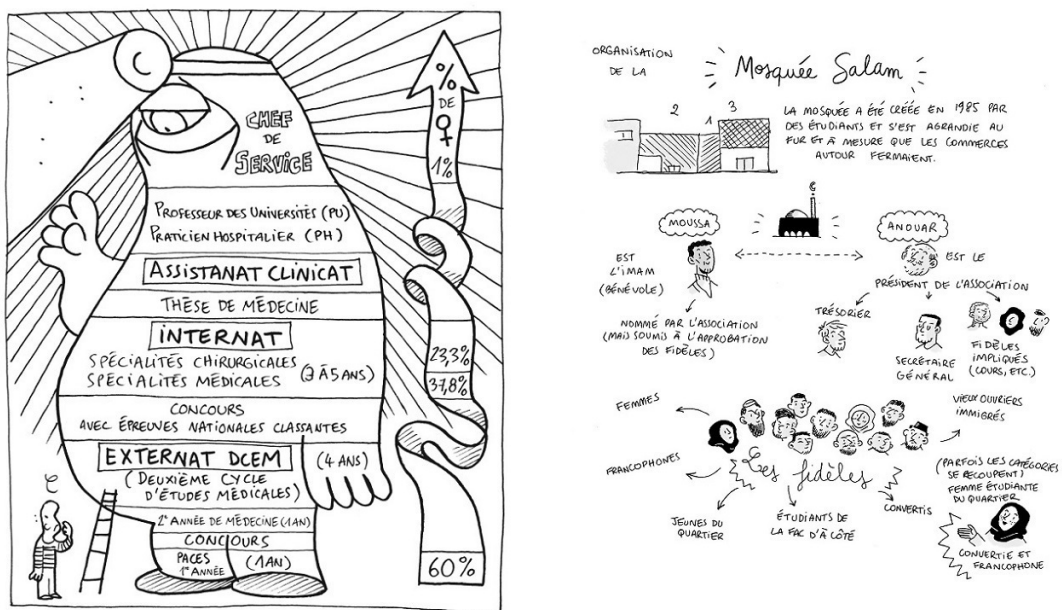 CHEF
DE
SERVICE
PROFESSEUR DES UNIVERSITÉS (PU)
PRATICIEN HOSPITALIER (PH)
ASSISTANAT CLINICAT
THÈSE DE MÉDECINE
INTERNAT
SPÉCIALITÉS CHIRURGICALES
SPÉCIALITÉS MÉDICALES
(3 À 5 ANS)
CONCOURS
AVEC ÉPREUVES NATIONALES CLASSANTES
EXTERNAT DCEM
(4 ANS)
(DEUXIÈME CYCLE
D'ÉTUDES MÉDICALES)
2e ANNÉE DE MÉDECINE (1 AN)
CONCOURS
PACES
1e ANNÉE
(1 AN)
%
DE
♀
1%
23,3%
37,8%
60%
ORGANISATION
DE LA
Mosquée Salam
2
1
3
LA MOSQUÉE A ÉTÉ CRÉÉE EN 1985 PAR
DES ÉTUDIANTS ET S'EST AGRANDIE AU
FUR ET À MESURE QUE LES COMMERCES
AUTOUR FERMAIENT.
MOUSSA
EST
L'IMAM
(BÉNÉVOLE)
NOMMÉ PAR L'ASSOCIATION
(MAIS SOUMIS À L'APPROBATION
DES FIDÈLES)
ANOUAR
EST LE
PRÉSIDENT DE L'ASSOCIATION
TRÉSORIER
SECRÉTAIRE
GÉNÉRAL
FIDÈLES
IMPLIQUÉS
(COURS, ETC.)
FEMMES
VIEUX OUVRIERS
IMMIGRÉS
Les fidèles
FRANCOPHONES
JEUNES DU
QUARTIER
ÉTUDIANTS DE
LA FAC D'À CÔTÉ
CONVERTIS
(PARFOIS LES CATÉGORIES
SE RECOUPENT)
FEMME ÉTUDIANTE
DU QUARTIER
CONVERTIE ET
FRANCOPHONE